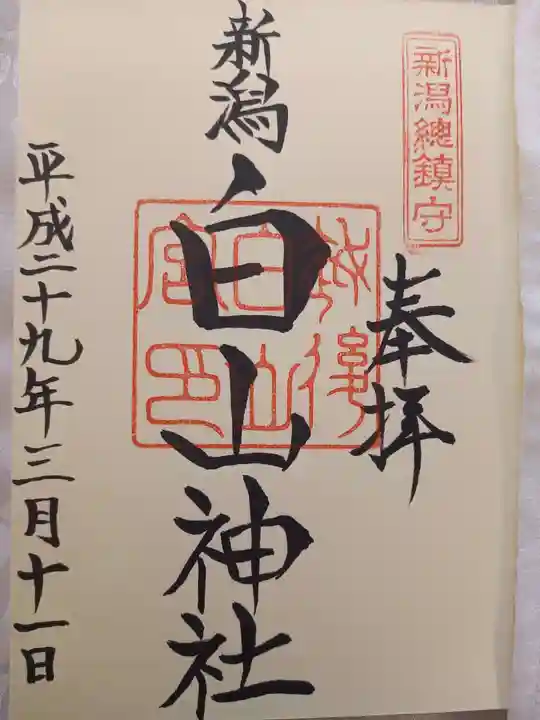 新潟總鎮守
奉拝
越後
白山
宮印
新潟白山神社
平成二十九年三月十一日